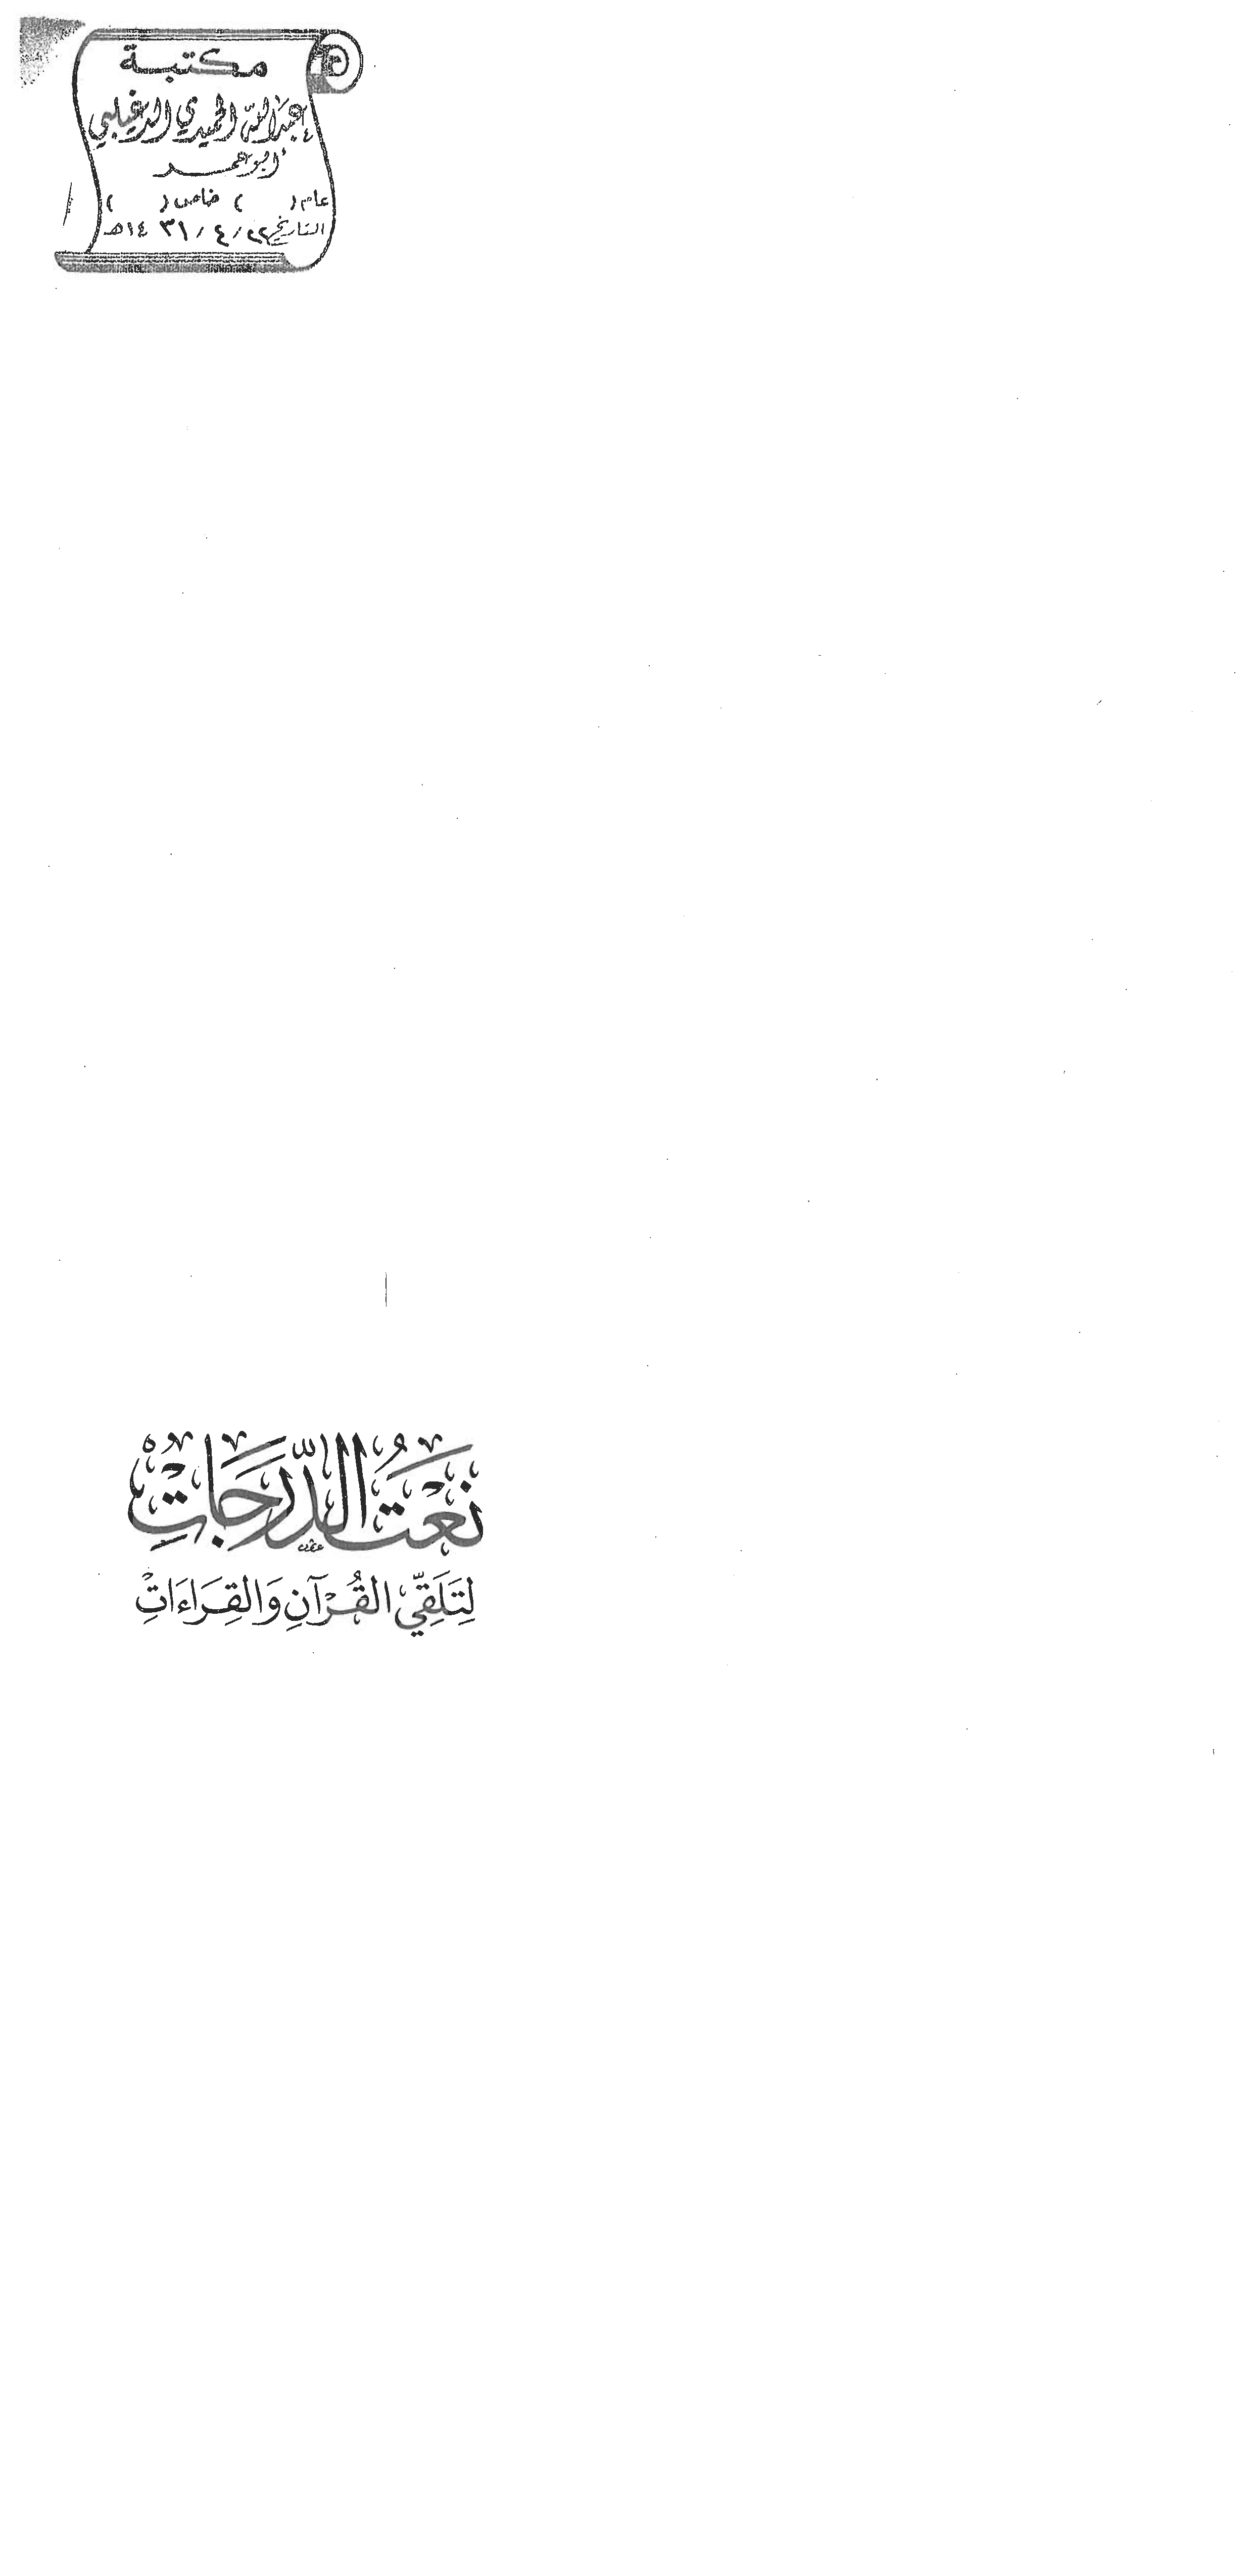 مكتبة
عبدالله الحميدي الدغيلبي
أبو عمر
عام ( ) خاص ( )
التاريخ ٢٢ / ٤ / ١٤٣١هـ
نَعْتُ الدَّرَجَاتِ
لِتَلَقِّي القُرْآنِ وَالقِرَاءَاتِ